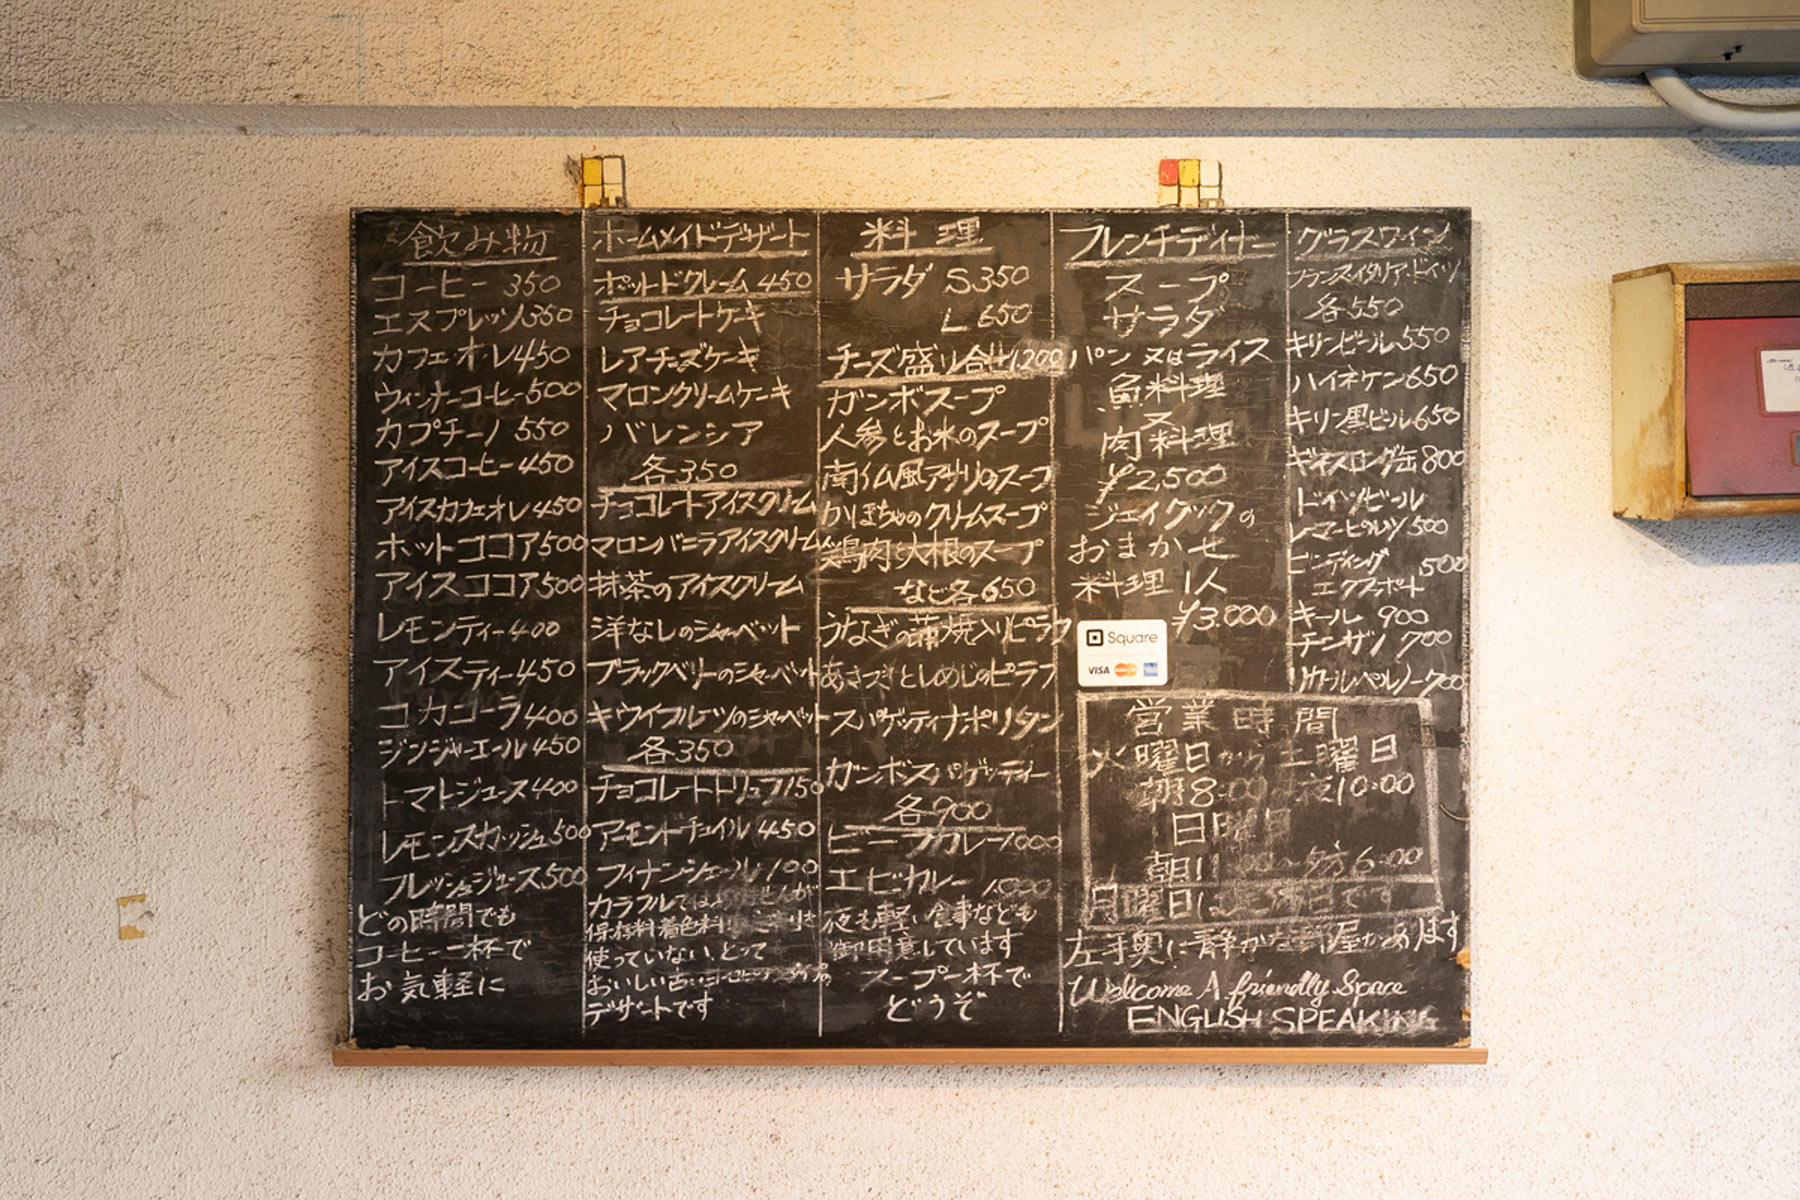 飲み物
コーヒー 350
エスプレッソ 350
カフェ・オ・レ 450
ウィンナーコーヒー 500
カプチーノ 550
アイスコーヒー 450
アイスカフェオレ 450
ホットココア 500
アイスココア 500
レモンティー 400
アイスティー 450
コカコーラ 400
ジンジャーエール 450
トマトジュース 400
レモンスカッシュ 500
フレッシュジュース 500
どの時間でも
コーヒー一杯で
お気軽に
ホームメイドデザート
ポットドクレーム 450
チョコレートケーキ
レアチーズケーキ
マロンクリームケーキ
バレンシア
各350
チョコレートアイスクリーム
マロンバニラアイスクリーム
抹茶のアイスクリーム
洋なしのシャーベット
ブラックベリーのシャーベット
キウイフルーツのシャーベット
各350
チョコレートトリュフ 150
アーモンドチュイル 450
フィナンシェール 100
カラフルでは
保存料着色料は
使っていない、とって
おいしい古い
デザートです
料理
サラダ S 350
L 650
チーズ盛り合せ 1200
ガンボスープ
人参とお米のスープ
南仏風アサリのスープ
かぼちゃのクリームスープ
鶏肉と大根のスープ
など各650
うなぎの蒲焼入りピラフ
あさつきとしめじのピラフ
スパゲッティナポリタン
ガンボスパゲッティー
各900
ビーフカレー 1.000
エビカレー 1.000
夜も軽い食事なども
御用意しています
スープ一杯で
どうぞ
フレンチディナー
スープ
サラダ
パン 又はライス
魚料理
又
肉料理
¥2,500
ジェイクックの
おまかせ
料理 1人
¥3.000
Square
VISA
営業時間
火曜日から土曜日
朝8:00〜夜10:00
日曜日
朝11:00〜夕方6:00
月曜日は定休日です
左手奥に静かな部屋があります
Welcome A friendly Space
ENGLISH SPEAKING
グラスワイン
フランス・イタリア・ドイツ
各550
キリンビール 550
ハイネケン 650
キリン黒ビール 650
ギネスロング缶 800
ドイツビール
レーマーピルツ 500
ビンディング 500
エクスポート
キール 900
チンザノ 700
リカールペルノー 700